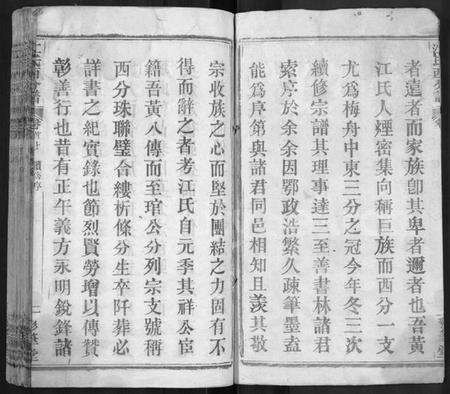 者遠者而家族卽其卑者邇者也吾黃
江氏人煙密集向稱巨族而西分一支
尤爲梅舟中東三分之冠今年冬三次
續修宗譜其理事達三至善書林諸君
索序於余余因鄂政浩繁久疎筆墨盍
能爲序第與諸君同邑相知且羨其敬
宗收族之心而堅於團結之力固有不
得而辭之者考江氏自元季其祥公宦
籍吾黃八傳而至琯公分列宗支號稱
西分珠聯璧合縷析條分生卒阡葬必
詳書之紀實錄也節烈賢勞增以傳贊
彰善行也昔有正午義方永明銳鋒諸